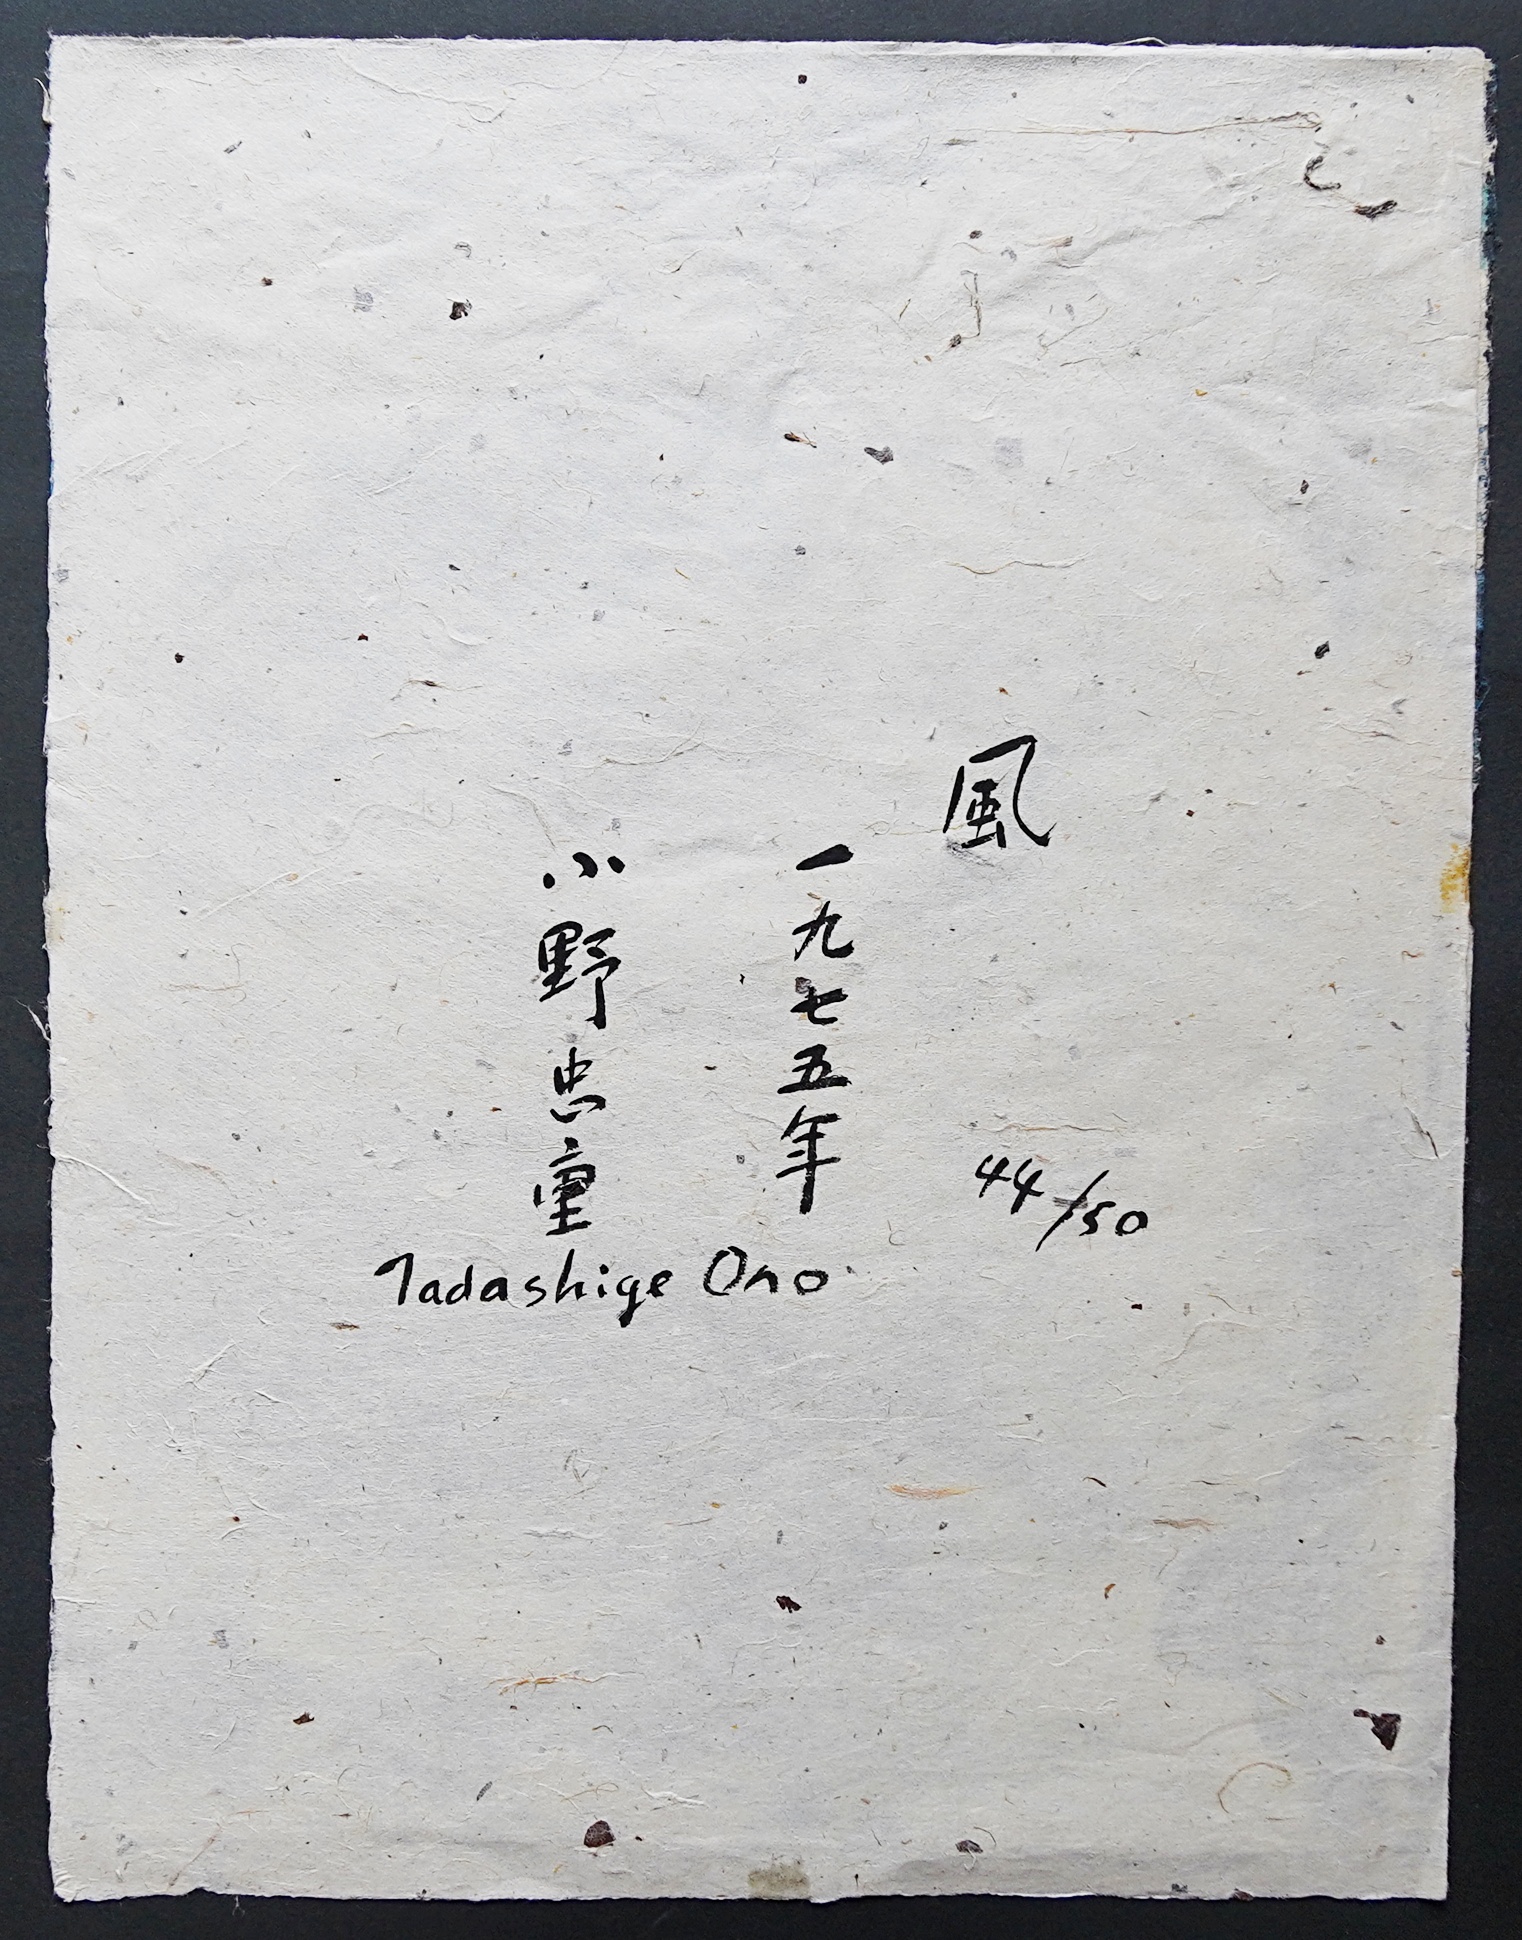 風
一九七五年
44/50
小野忠重
Tadashige Ono